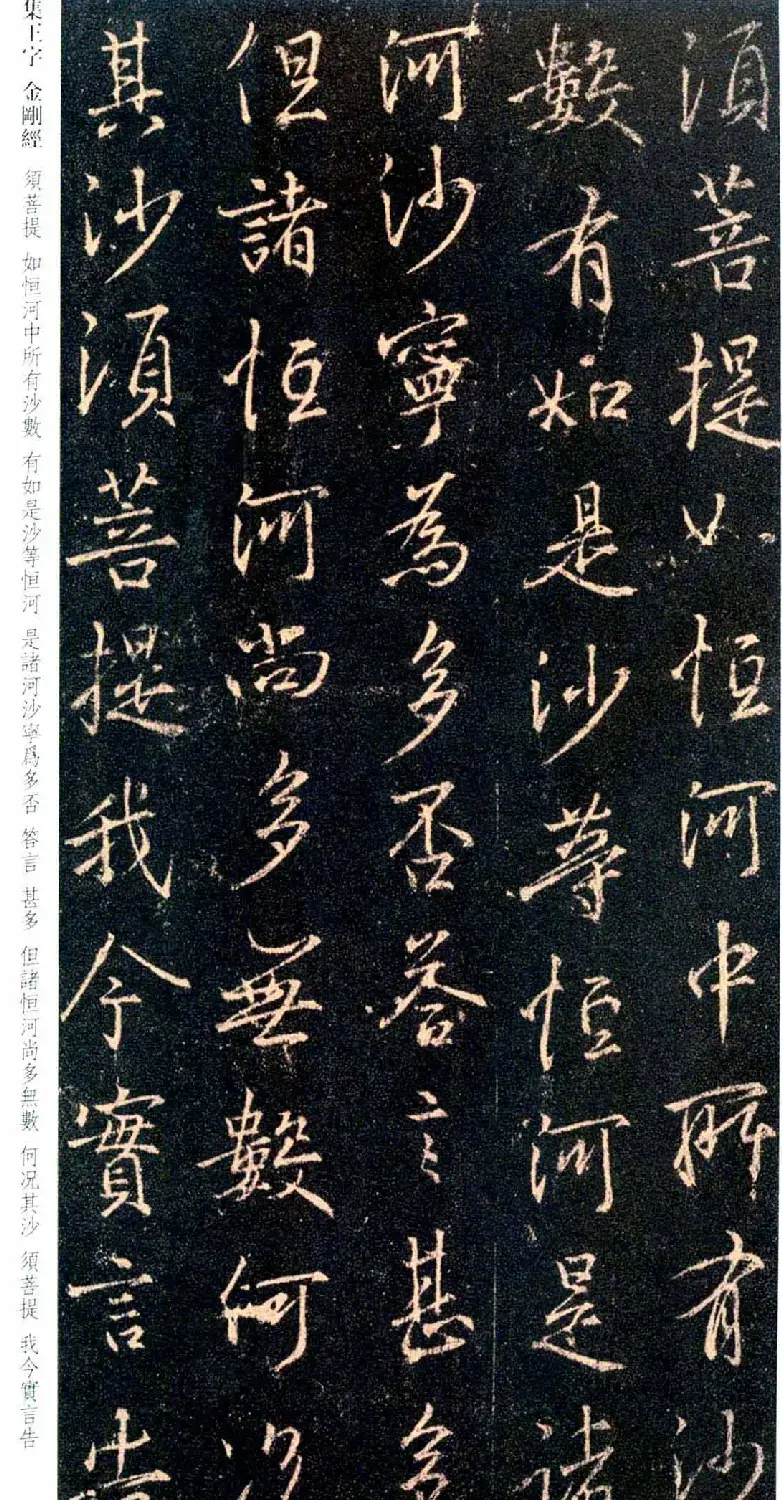 須菩提如恒河中所有沙
數有如是沙等恒河是諸
河沙寧為多否答言甚多
但諸恒河尚多無數何況
其沙須菩提我今實言告
集王字 金剛經 須菩提 如恒河中所有沙數 有如是沙等恒河 是諸河沙寧爲多否 答言 甚多 但諸恒河尚多無數 何况其沙 須菩提 我今實言告